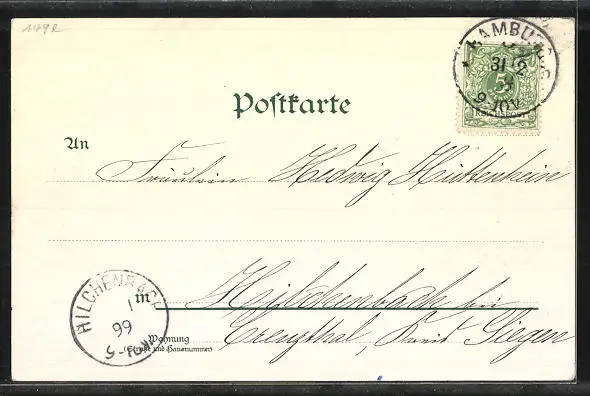 HAMBURG
31 12
9-10V.
5
REICHSPOST
Postkarte
An
Fräulein Hedwig Hüttenhein
in Hilchenbach bei
Creuzthal, Kreis Siegen
Wohnung
(Straße und Hausnummer)
HILCHENBACH
1
99